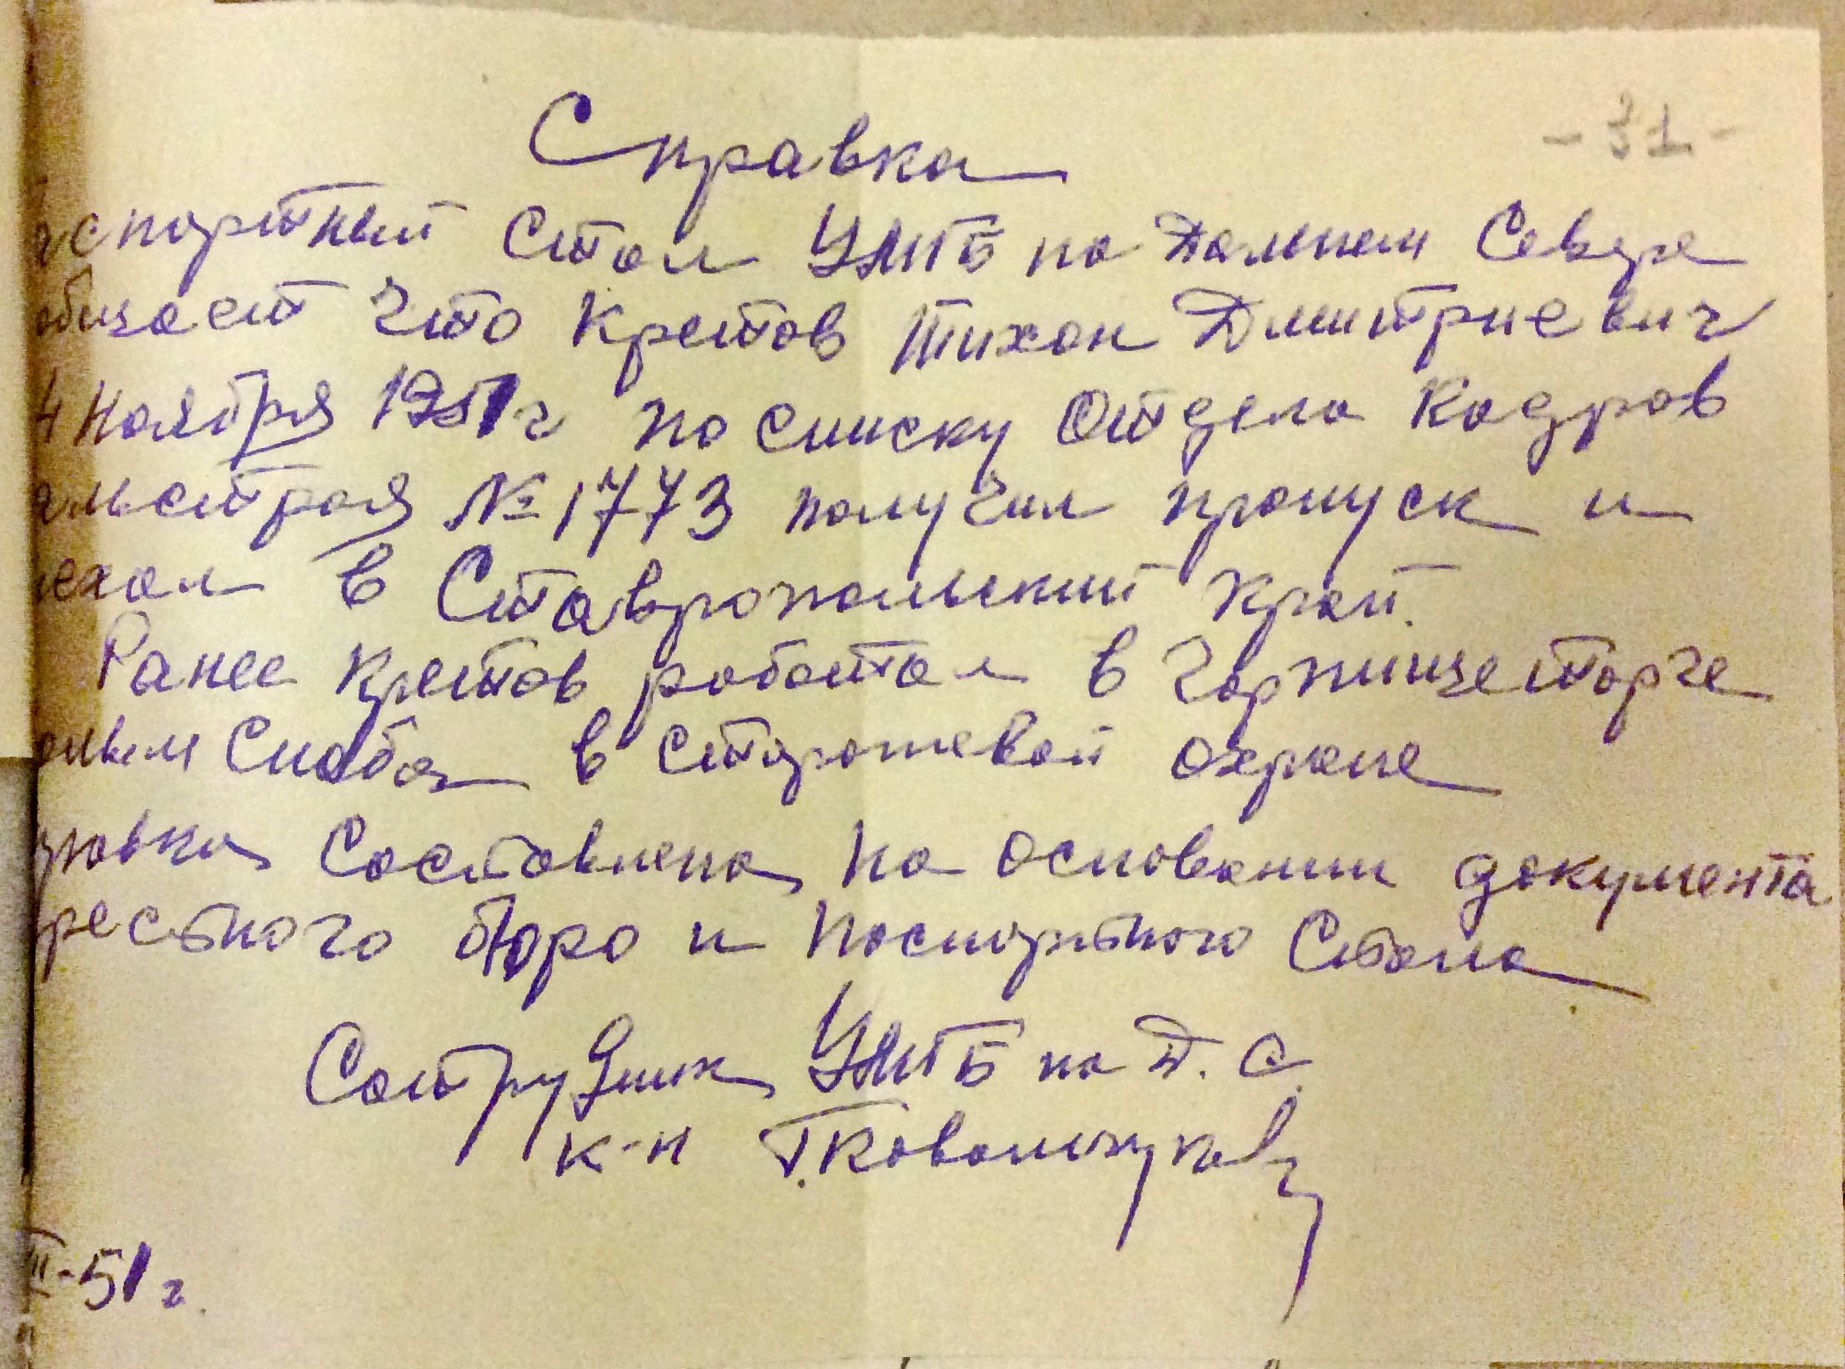 - 31 -
Справка
аспортный стол УМГБ на Дальнем Севере
общает что Кретов Тихон Дмитриевич
4 Ноября 1951 г по списку Отдела Кадров
альстроя № 1773 получил пропуск и
ехал в Ставропольский край.
Ранее Кретов работал в Горпищеторге
Снаба в сторожевой охране
равка составлена на основании документа
ресного бюро и паспортного стола
Сотрудник УМГБ на Д. С.
к-н
III-51 г.